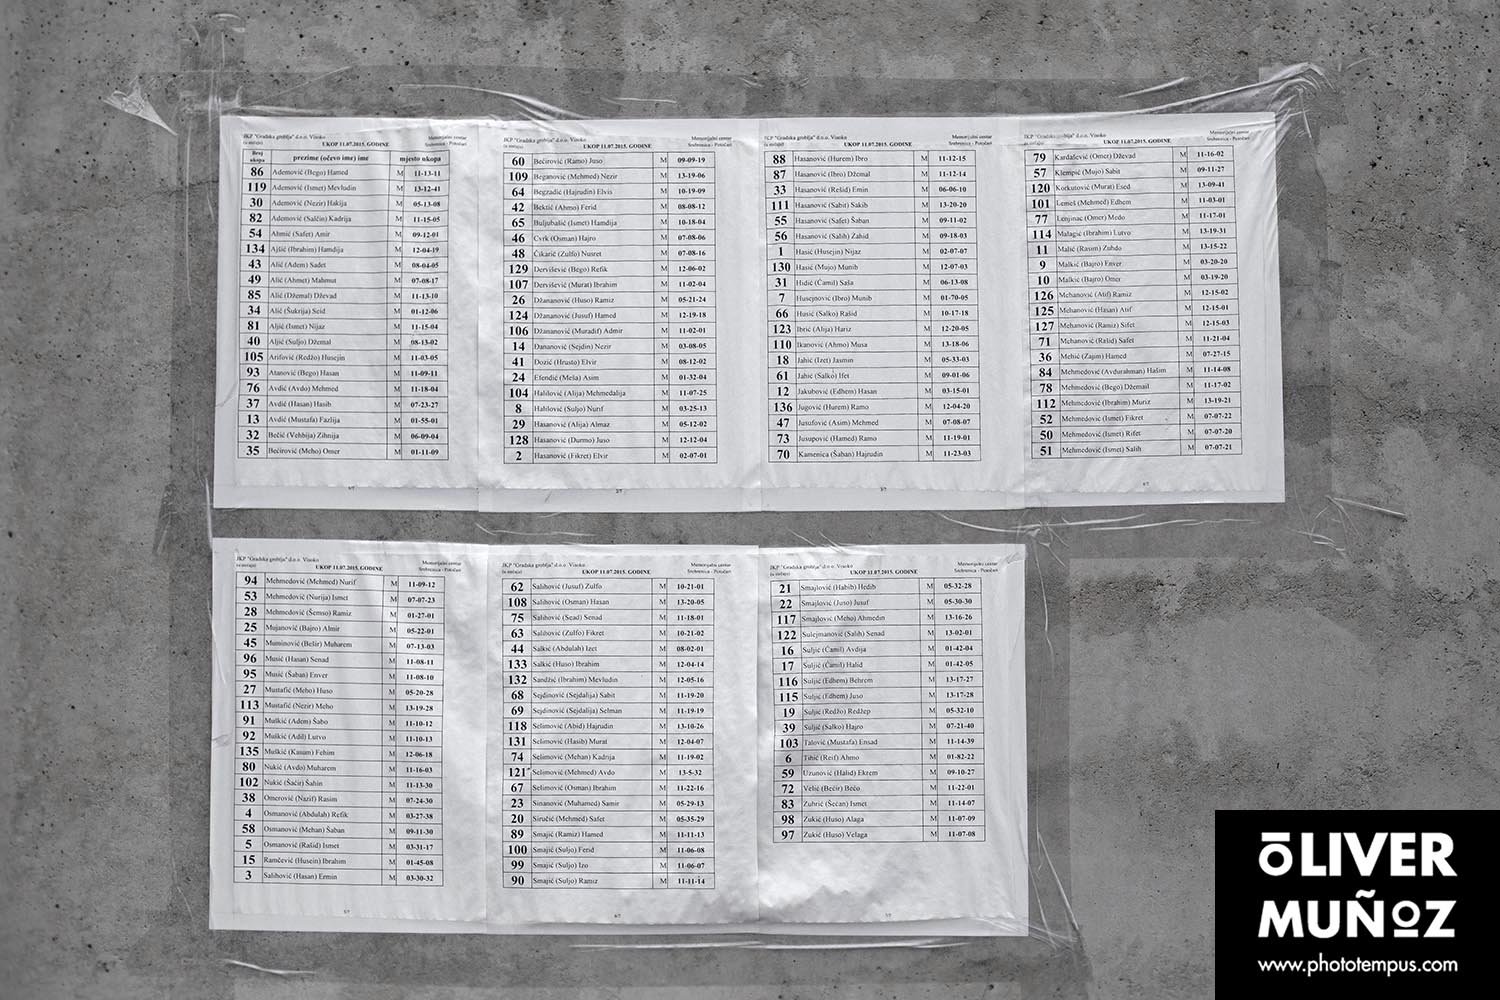 JKP "Gradska groblja" d.o.o. Visoko
Memorijalni centar
Srebrenica - Potočari
UKOP 11.07.2015. GODINE
Broj ukopa prezime (očevo ime) ime mjesto ukopa
86 Ademović (Bego) Hamed M 11-13-11
119 Ademović (Ismet) Mevludin M 13-12-41
30 Ademović (Nezir) Hakija M 05-13-08
82 Ademović (Salčin) Kadrija M 11-15-05
54 Ahmić (Safet) Amir M 09-12-01
134 Ajšić (Ibrahim) Hamdija M 12-04-19
43 Alić (Adem) Sadet M 08-04-05
49 Alić (Ahmet) Mahmut M 07-08-17
85 Alić (Džemal) Dževad M 11-13-10
34 Alić (Šukrija) Seid M 01-12-06
81 Aljić (Ismet) Nijaz M 11-15-04
40 Aljić (Suljo) Džemal M 08-13-02
105 Arifović (Redžo) Husejin M 11-03-05
93 Atanović (Bego) Hasan M 11-09-11
76 Avdić (Avdo) Mehmed M 11-18-04
37 Avdić (Hasan) Hasib M 07-23-27
13 Avdić (Mustafa) Fazlija M 01-55-01
32 Bečić (Vehbija) Zihnija M 06-09-04
35 Bećirović (Meho) Omer M 01-11-09
JKP "Gradska groblja" d.o.o. Visoko
Memorijalni centar
Srebrenica - Potočari
UKOP 11.07.2015. GODINE
60 Bećirović (Ramo) Juso M 09-09-19
109 Beganović (Mehmed) Nezir M 13-19-06
64 Begzadić (Hajrudin) Elvis M 10-19-09
42 Bektić (Ahmo) Ferid M 08-08-12
65 Buljubašić (Ismet) Hamdija M 10-18-04
46 Cvrk (Osman) Hajro M 07-08-06
48 Čikarić (Zulfo) Nusret M 07-08-16
129 Dervišević (Bego) Refik M 12-06-02
107 Dervišević (Murat) Ibrahim M 11-02-04
26 Džananović (Huso) Ramiz M 05-21-24
124 Džananović (Jusuf) Hamed M 12-19-18
106 Džananović (Muradif) Admir M 11-02-01
14 Đananović (Sejdin) Nezir M 03-08-05
41 Dozić (Hrusto) Elvir M 08-12-02
24 Efendić (Meša) Asim M 01-32-04
104 Halilović (Alija) Mehmedalija M 11-07-25
8 Halilović (Suljo) Nurif M 03-25-13
29 Hasanović (Alija) Almaz M 05-12-02
128 Hasanović (Durmo) Juso M 12-12-04
2 Hasanović (Fikret) Elvir M 02-07-01
2/7
JKP "Gradska groblja" d.o.o. Visoko
Memorijalni centar
Srebrenica - Potočari
UKOP 11.07.2015. GODINE
88 Hasanović (Hurem) Ibro M 11-12-15
87 Hasanović (Ibro) Džemal M 11-12-14
33 Hasanović (Rešid) Emin M 06-06-10
111 Hasanović (Sabit) Sakib M 13-20-20
55 Hasanović (Safet) Šaban M 09-11-02
56 Hasanović (Salih) Zahid M 09-18-03
1 Hasić (Husejin) Nijaz M 02-07-07
130 Hasić (Mujo) Munib M 12-07-03
31 Hidić (Ćamil) Saša M 06-13-08
7 Husejnović (Ibro) Munib M 01-70-05
66 Husić (Salko) Rašid M 10-17-18
123 Ibrić (Alija) Hariz M 12-20-05
110 Ikanović (Ahmo) Musa M 13-18-06
18 Jahić (Izet) Jasmin M 05-33-03
61 Jahić (Salko) Ifet M 09-01-06
12 Jakubović (Edhem) Hasan M 03-15-01
136 Jugović (Hurem) Ramo M 12-04-20
47 Jusufović (Asim) Mehmed M 07-08-07
73 Jusupović (Hamed) Ramo M 11-19-01
70 Kamenica (Šaban) Hajrudin M 11-23-03
3/7
JKP "Gradska groblja" d.o.o. Visoko
Memorijalni centar
Srebrenica - Potočari
UKOP 11.07.2015. GODINE
79 Kardašević (Omer) Dževad M 11-16-02
57 Klempić (Mujo) Sabit M 09-11-27
120 Korkutović (Murat) Esed M 13-09-41
101 Lemeš (Mehmed) Edhem M 11-03-01
77 Lenjinac (Omer) Medo M 11-17-01
114 Malagić (Ibrahim) Lutvo M 13-19-31
11 Malić (Rasim) Zuhdo M 13-15-22
9 Malkić (Bajro) Enver M 03-20-20
10 Malkić (Bajro) Omer M 03-19-20
126 Mehanović (Atif) Ramiz M 12-15-02
125 Mehanović (Hasan) Atif M 12-15-01
127 Mehanović (Ramiz) Sifet M 12-15-03
71 Mehanović (Rašid) Safet M 11-21-04
36 Mehić (Zajim) Hamed M 07-27-15
84 Mehmedović (Avdurahman) Hašim M 11-14-08
78 Mehmedović (Bego) Džemail M 11-17-02
112 Mehmedović (Ibrahim) Muriz M 13-19-21
52 Mehmedović (Ismet) Fikret M 07-07-22
50 Mehmedović (Ismet) Rifet M 07-07-20
51 Mehmedović (Ismet) Salih M 07-07-21
4/7
JKP "Gradska groblja" d.o.o. Visoko
Memorijalni centar
Srebrenica - Potočari
UKOP 11.07.2015. GODINE
94 Mehmedović (Mehmed) Nurif M 11-09-12
53 Mehmedović (Nurija) Ismet M 07-07-23
28 Mehmedović (Šemso) Ramiz M 01-27-01
25 Mujanović (Bajro) Almir M 05-22-01
45 Muminović (Bešir) Muharem M 07-13-03
96 Musić (Hasan) Senad M 11-08-11
95 Musić (Šaban) Enver M 11-08-10
27 Mustafić (Meho) Huso M 05-20-28
113 Mustafić (Nezir) Meho M 13-19-28
91 Muškić (Adem) Šabo M 11-10-12
92 Muškić (Adil) Lutvo M 11-10-13
135 Muškić (Kasum) Fehim M 12-06-18
80 Nukić (Avdo) Muharem M 11-16-03
102 Nukić (Šaćir) Šahin M 11-13-30
38 Omerović (Nazif) Rasim M 07-24-30
4 Osmanović (Abdulah) Refik M 03-27-38
58 Osmanović (Mehan) Šaban M 09-11-30
5 Osmanović (Rašid) Ismet M 03-31-17
15 Ramčević (Husein) Ibrahim M 01-45-08
3 Salihović (Hasan) Ermin M 03-30-32
5/7
JKP "Gradska groblja" d.o.o. Visoko
Memorijalni centar
Srebrenica - Potočari
UKOP 11.07.2015. GODINE
62 Salihović (Jusuf) Zulfo M 10-21-01
108 Salihović (Osman) Hasan M 13-20-05
75 Salihović (Sead) Senad M 11-18-01
63 Salihović (Zulfo) Fikret M 10-21-02
44 Salkić (Abdulah) Izet M 08-02-01
133 Salkić (Huso) Ibrahim M 12-04-14
132 Sandžić (Ibrahim) Mevludin M 12-05-16
68 Sejdinović (Sejdalija) Sabit M 11-19-20
69 Sejdinović (Sejdalija) Selman M 11-19-19
118 Selimović (Abid) Hajrudin M 13-10-26
131 Selimović (Hasib) Murat M 12-04-07
74 Selimović (Mehan) Kadrija M 11-19-02
121 Selimović (Mehmed) Avdo M 13-5-32
67 Selimović (Osman) Ibrahim M 11-22-16
23 Sinanović (Muhamed) Samir M 05-29-13
20 Siručić (Mehmed) Safet M 05-35-29
89 Smajić (Ramiz) Hamed M 11-11-13
100 Smajić (Suljo) Ferid M 11-06-08
99 Smajić (Suljo) Izo M 11-06-07
90 Smajić (Suljo) Ramiz M 11-11-14
6/7
JKP "Gradska groblja" d.o.o. Visoko
Memorijalni centar
Srebrenica - Potočari
UKOP 11.07.2015. GODINE
21 Smajlović (Habib) Hedib M 05-32-28
22 Smajlović (Juso) Jusuf M 05-30-30
117 Smajlović (Meho) Ahmedin M 13-16-26
122 Sulejmanović (Salih) Senad M 13-02-01
16 Suljić (Ćamil) Avdija M 01-42-04
17 Suljić (Ćamil) Halid M 01-42-05
116 Suljić (Edhem) Behrem M 13-17-27
115 Suljić (Edhem) Juso M 13-17-28
19 Suljić (Redžo) Redžep M 05-32-10
39 Suljić (Salko) Hajro M 07-21-40
103 Talović (Mustafa) Ensad M 11-14-39
6 Tihić (Reif) Ahmo M 01-82-22
59 Uzunović (Halid) Ekrem M 09-10-27
72 Velić (Bećir) Bećo M 11-22-01
83 Zuhrić (Šećan) Ismet M 11-14-07
98 Zukić (Huso) Alaga M 11-07-09
97 Zukić (Huso) Velaga M 11-07-08
7/7
ŌLIVER
MUÑOZ
www.phototempus.com